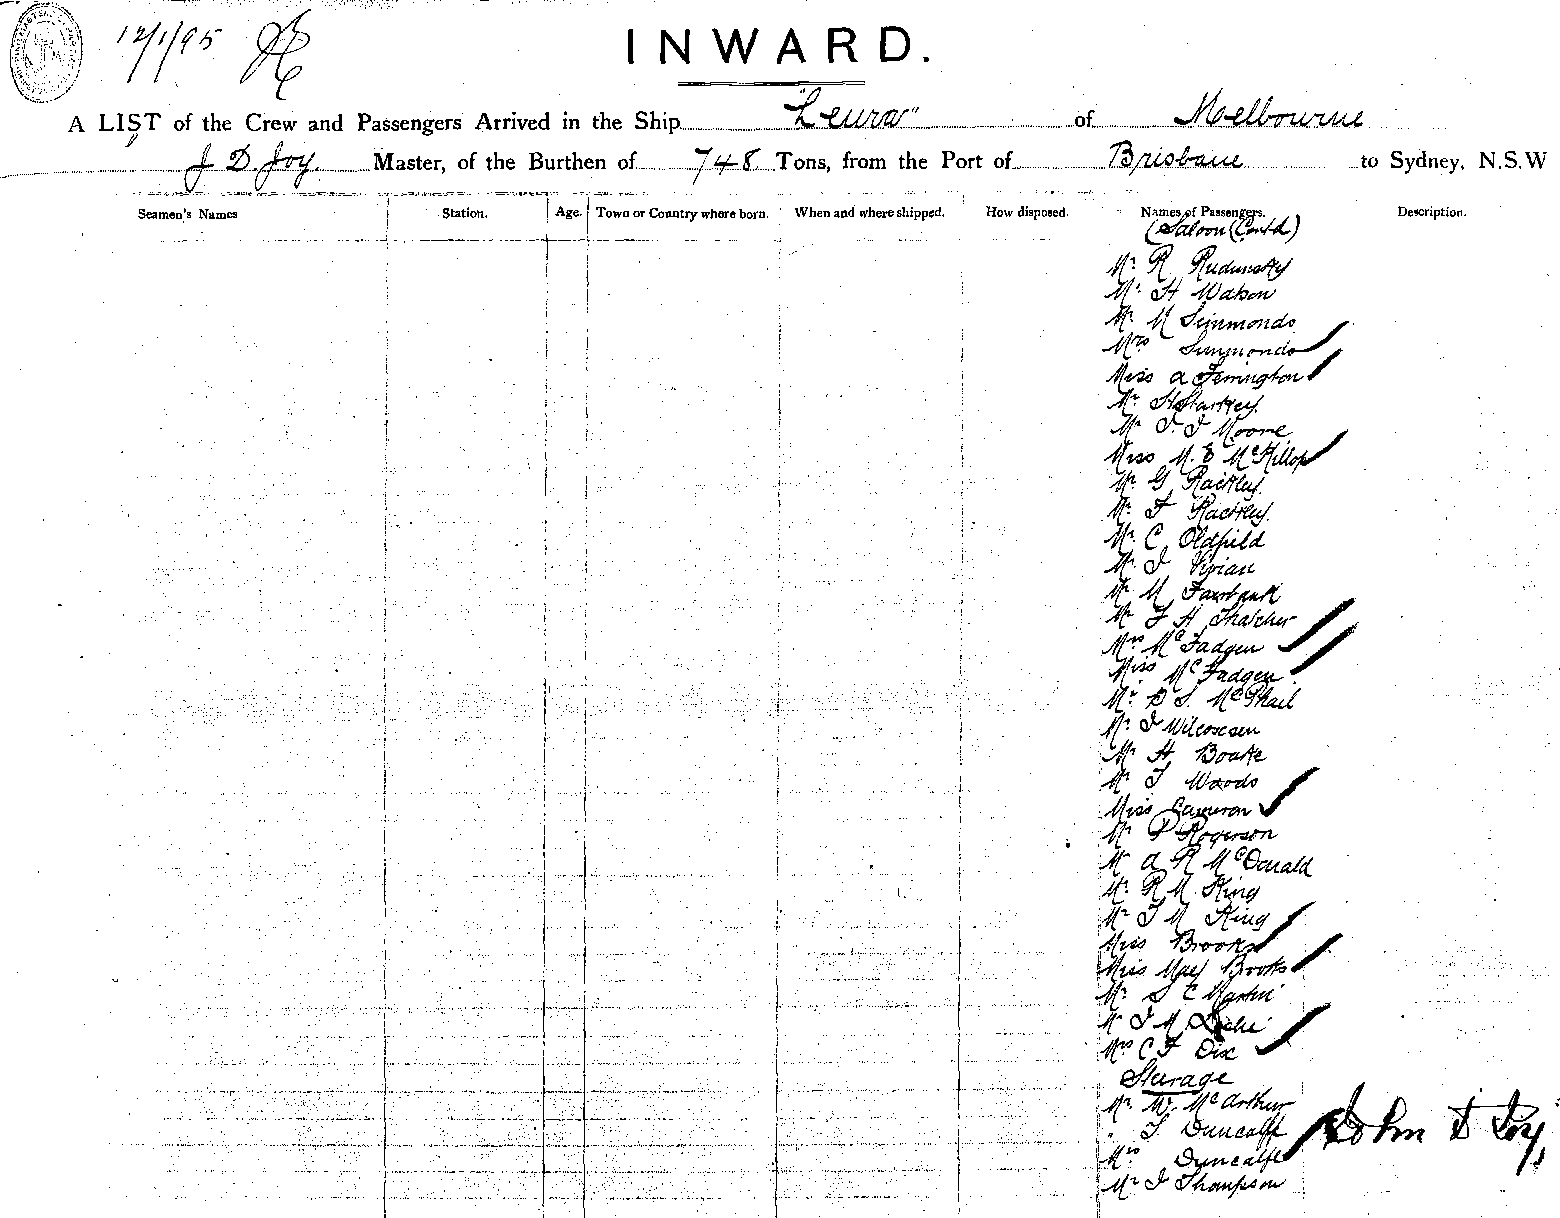 12/1/95
INWARD.
A LIST of the Crew and Passengers Arrived in the Ship "Leura" of Melbourne
J D. Joy. Master, of the Burthen of 748 Tons, from the Port of Brisbane to Sydney, N.S.W
Seamen's Names Station. Age. Town or Country where born. When and where shipped. How disposed. Names of Passengers. Description.
(Saloon (Contd)
Mr R Rudunsky
Mr H Watson
Mr M Simmonds
Mrs Simmonds
Miss A Ferrington
Mr H Starkey
Mr J. J Moore
Miss M. E McKillop
Mr G Rackley
Mr F Rackley
Mr C Oldfield
Mr J Vivian
Mr M Fairbank
Mr F H Thatcher
Mrs McFadgen
Miss McFadgen
Mr D S. McPhail
Mr J
Mr H Boake
Mr T Woods
Miss Cameron
Mr P Rogerson
Mr A R McDonald
Mr R M King
Mr J M King
Miss Brooks
Miss May Brooks
Mr S C Martin
Mr J M
Mrs C F Dix
Steerage
Mr W. McArthur
" T Duncalfe
Mrs Duncalfe
Mr J Thompson
John D Joy